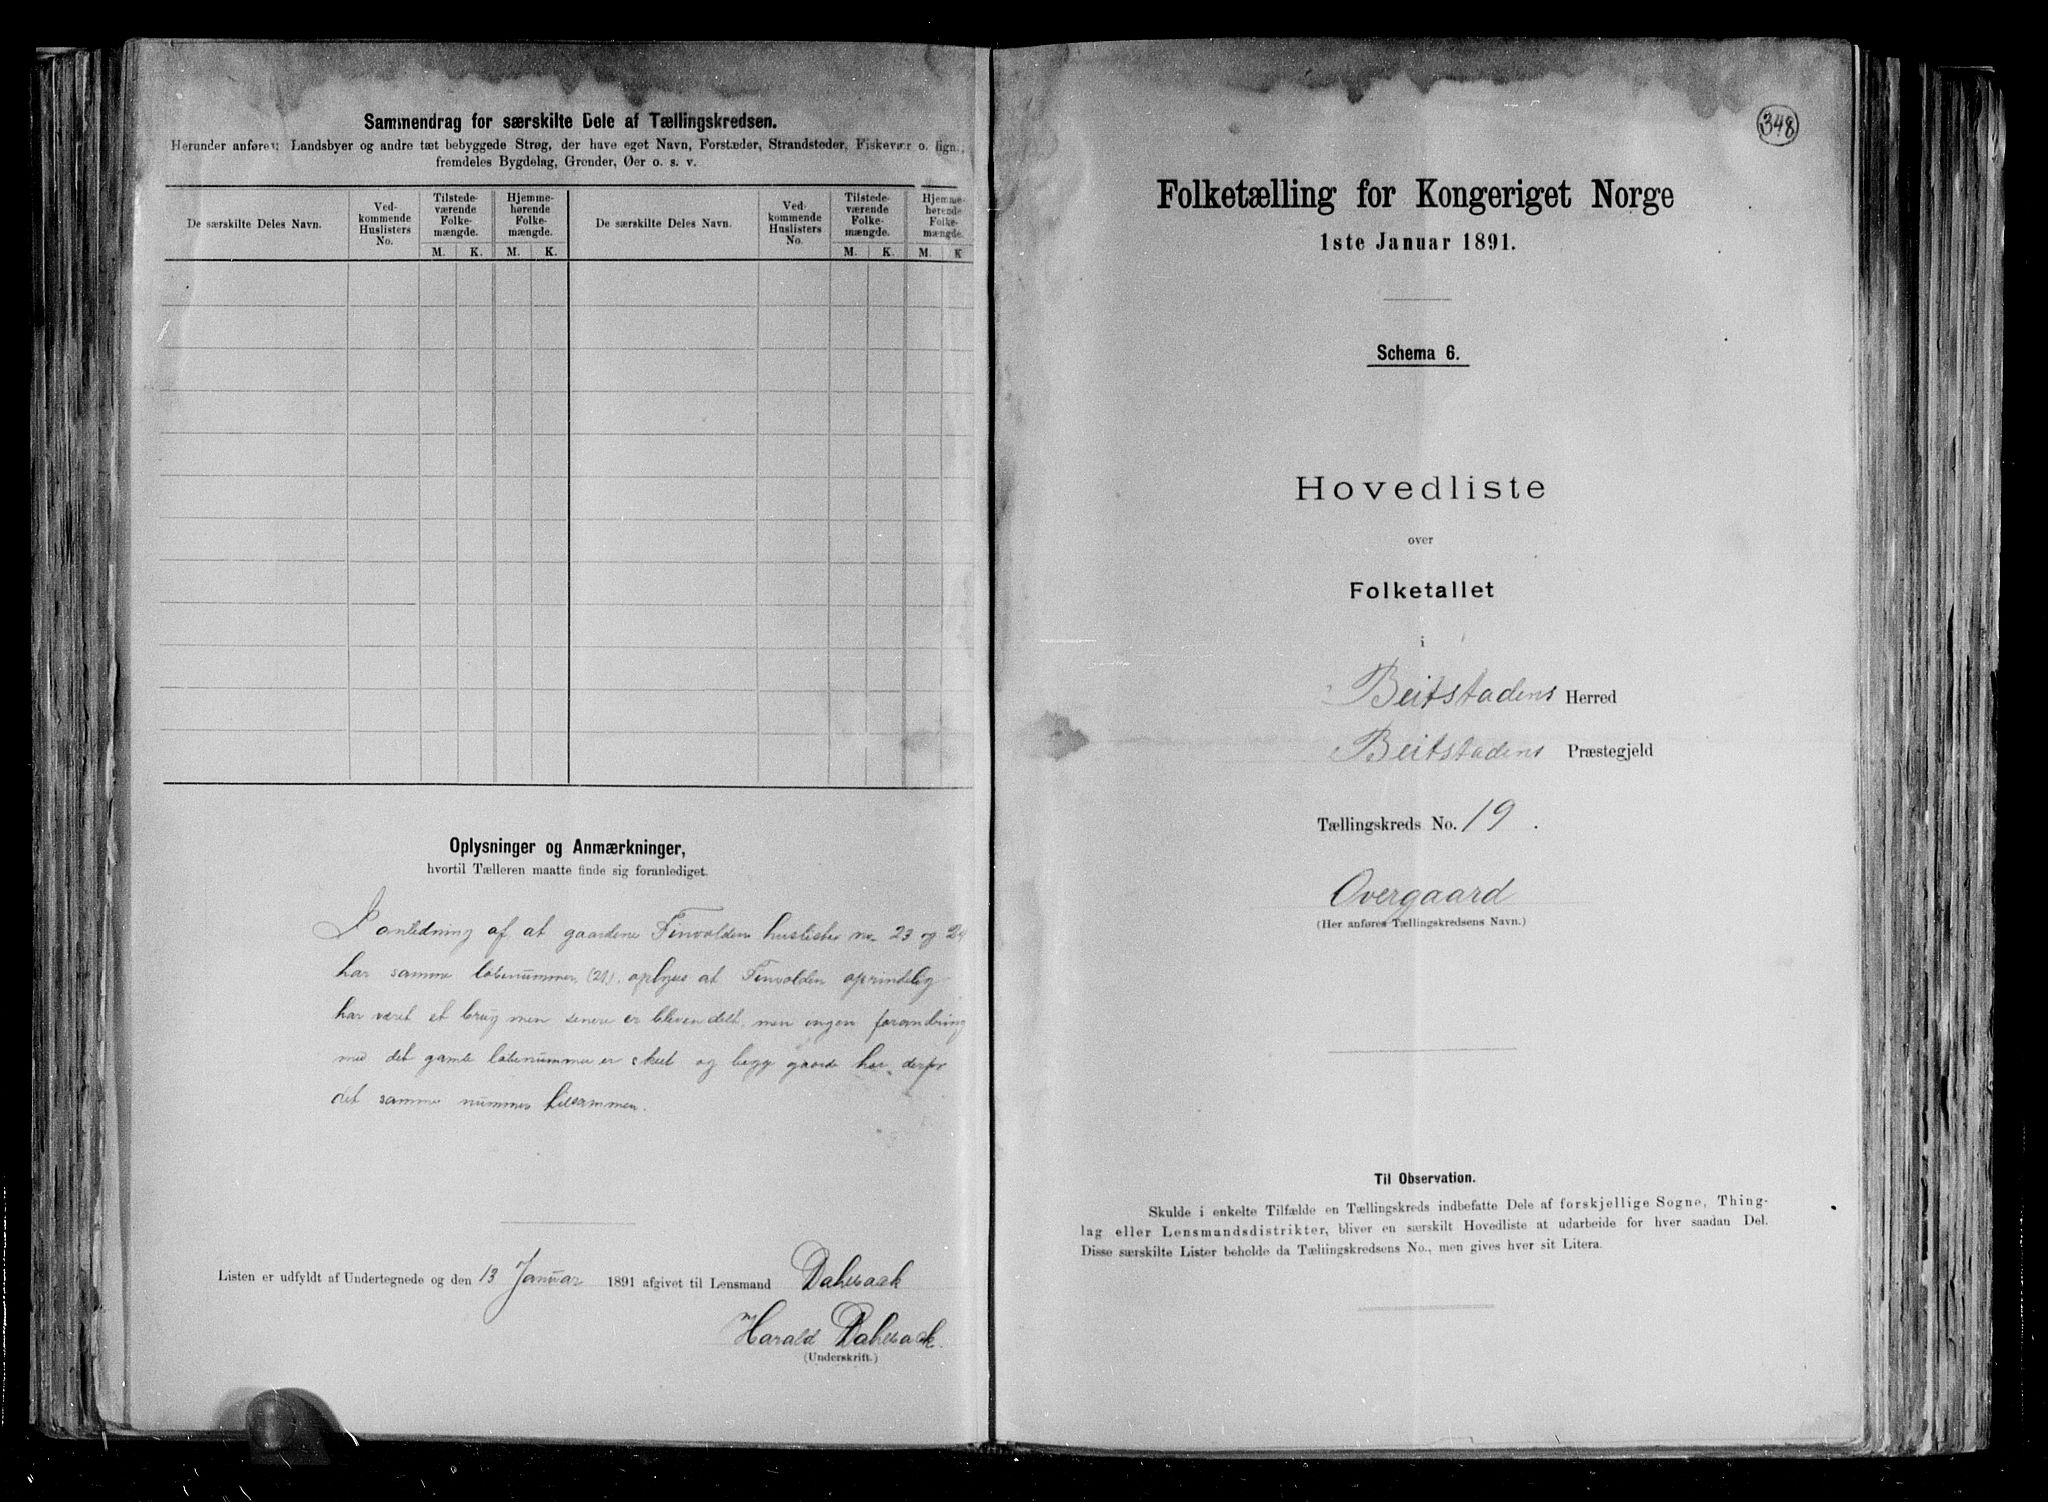 Sammendrag for særskilte Dele af Tællingskredsen.
Herunder anføres: Landsbyer og andre tæt bebyggede Strøg, der have eget Navn, Forstæder, Strandsteder, Fiskevær o. lign.,
fremdeles Bygdelag, Grender, Øer o. s. v.
De særskilte Deles Navn.
Ved-
kommende
Huslisters
No.
Tilstede-
værende
Folke-
mængde.
M. K.
Hjemme-
hørende
Folke-
mængde.
M. K.
De særskilte Deles Navn.
Ved-
kommende
Huslisters
No.
Tilstede-
værende
Folke-
mængde.
M. K.
Hjemme-
hørende
Folke-
mængde.
M. K
Oplysninger og Anmærkninger,
hvortil Tælleren maatte finde sig foranlediget.
I anledning af at gaardene Finvolden huslister no. 23 og 24
har samme løbenummer (21), oplyses at Finvolden oprindelig
har været et brug men senere er bleven delt, men ingen forandring
med det gamle løbenummer er skeet og begge gaarde har derfor
det samme nummer tilsammen.
Listen er udfyldt af Undertegnede og den 13 Januar 1891 afgivet til Lensmand Dahlback
Harald Dahlback.
(Underskrift.)
348
Folketælling for Kongeriget Norge
1ste Januar 1891.
Schema 6.
Hovedliste
over
Folketallet
i
Beitstadens Herred
Beitstadens Præstegjeld
Tællingskreds No. 19.
Overgaard
(Her anføres Tællingskredsens Navn.)
Til Observation.
Skulde i enkelte Tilfælde en Tællingskreds indbefatte Dele af forskjellige Sogne, Thing-
lag eller Lensmandsdistrikter, bliver en særskilt Hovedliste at udarbeide for hver saadan Del.
Disse særskilte Lister beholde da Tællingskredsens No., men gives hver sit Litera.